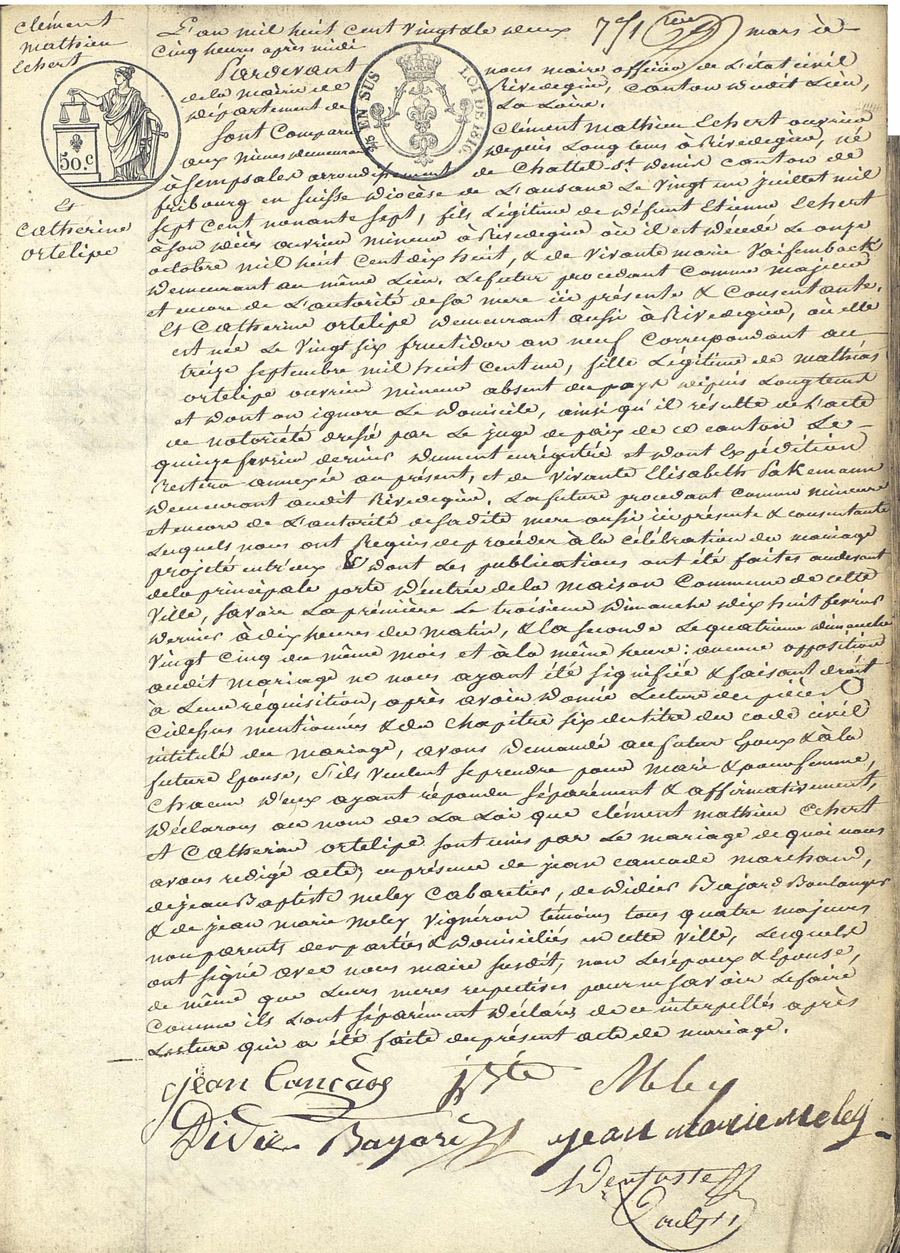 clément
mathieu
Echert
50.c
Et
Catherine
ortelipe
25 EN SUS LOI DE 1816.
L'an mil huit cent vingt & le deux mars à
Cinq heures après midi
Pardevant nous maire officier de L'état civil
de la mairie de Rivedegier, canton dudit Lieu,
département de La Loire.
Sont Comparu Clément mathieu Echert ouvrier
aux mines demeurant depuis Longtems à Rivedegier, né
à Sempsales arrondissement de Chattel St. Denis canton de
fribourg en Suisse diocèse de Lausane Le vingt un juillet mil
sept cent nonante sept, fils Légitime de défunt Etienne Echert
à son décès ouvrier mineur à Rivedegier où il est décédé Le onze
octobre mil huit cent dix huit, & de vivante marie Vaisemback
demeurant au même Lieu. Le futur procédant comme majeur
et encore de L'autorité de sa mere ici présente & Consentante.
Et Catherine ortelipe demeurant aussi à Rivedegier, où elle
est née Le vingt six fructidor an neuf correspondant au
treize septembre mil huit cent un, fille Légitime de mathias
ortelipe ouvrier mineur absent du pays depuis Longtems
et dont on ignore Le domicile, ainsi qu'il résulte de L'acte
de notoriété dressé par Le juge de paix de ce canton Le
quinze fevrier dernier dument enregistré et dont Expédition
restera annexée au présent, et de vivante Elisabeth Pakemann
demeurant audit Rivedegier. La future procedant comme mineure
et encore de L'autorité de sa dite mere aussi ici présente & consentante
Lesquels nous ont Requis de procéder à la célébration du mariage
projeté entr'eux & dont Les publications ont été faites au devant
de la principale porte d'entrée de la maison Commune de cette
Ville, savoir La première Le troisieme dimanche dix huit fevrier
dernier à dix heures du matin, & la seconde Le quatrieme dimanche
vingt cinq du même mois et à la même heure: aucune opposition
audit mariage ne nous ayant été signifiée & faisant droit
à Leur réquisition, après avoir donné Lecture des pièces
cidessus mentionnées & du chapitre six du titre du code civil
intitulé du mariage, avons demandé au futur Epoux & à la
future Epouse, s'ils veulent se prendre pour mari & pour femme,
Chacun d'eux ayant répondu séparément & affirmativement,
déclarons au nom de La Loi que clément mathieu Echert
et Catherine ortelipe sont unis par Le mariage de quoi nous
avons redigé acte; en présence de jean cancade marchand,
de jean Baptiste meley Cabaretier, de didier Bajard Boulanger
& de jean marie meley vigneron témoins tous quatre majeurs
non parents des parties & domiciliés en cette ville, Lesquels
ont signé avec nous maire susdit, non Les époux & Epouse,
de même que Leurs meres respectives pour ne savoir Le faire
Comme ils L'ont séparément déclaré de ce interpellés après
Lecture qui a été faite du présent acte de mariage.
jean Cancade jBte Meley
Didier Bayard jean marie meley